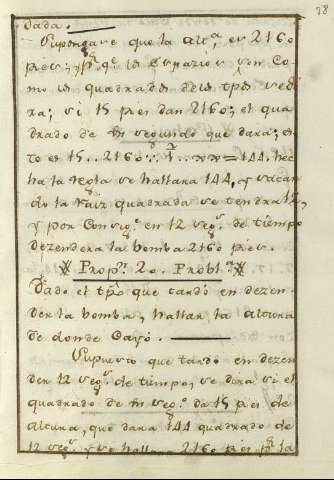 38
dada.
Supongase que la alt.ª es 2160
pies; y p.r q.e los Espazios son Co-
mo los quadrados de los tpõs se di-
ra; si 15 pies dan 2160; el qua-
drado de Vn segundo que dara; es-
to es 15..2160::1..xx=144. hec-
ha la regla se hallara 144, y sacan-
do la raiz quadrada se tendra 12,
y por Consig.e en 12 seg.s de tiempo
dezendera la bomba 2160 pies.
Prop.n 2o. Probl.ª
Dado el tpõ que tardó en dezen-
der la bomba, hallar la altura
de donde Cayó.
Supuesto que tardó en dezen-
der 12 seg.s de tiempo, se dira si el
quadrado de Vn seg.o da 15 pies de
altura, que dara 144 quadrado de
12 seg.s y se hallara 2160 pies p.r la